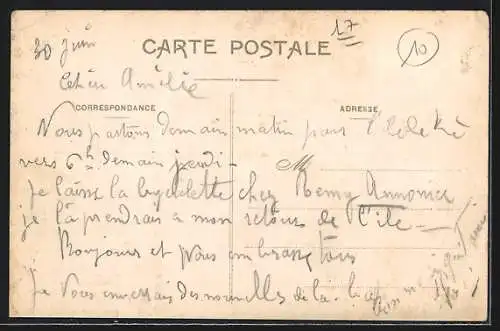 17
10
30 juin
CARTE POSTALE
Amélie
CORRESPONDANCE
ADRESSE
Nous partons demain matin pour l'île
vers 6h demain jeudi -
M
je laisse la bycyclette chez Remy Annonier
je la prendrais a mon retour de l'île -
Bonjours et nous embrassons tous
je vous enverrais des nouvelles de la-bas